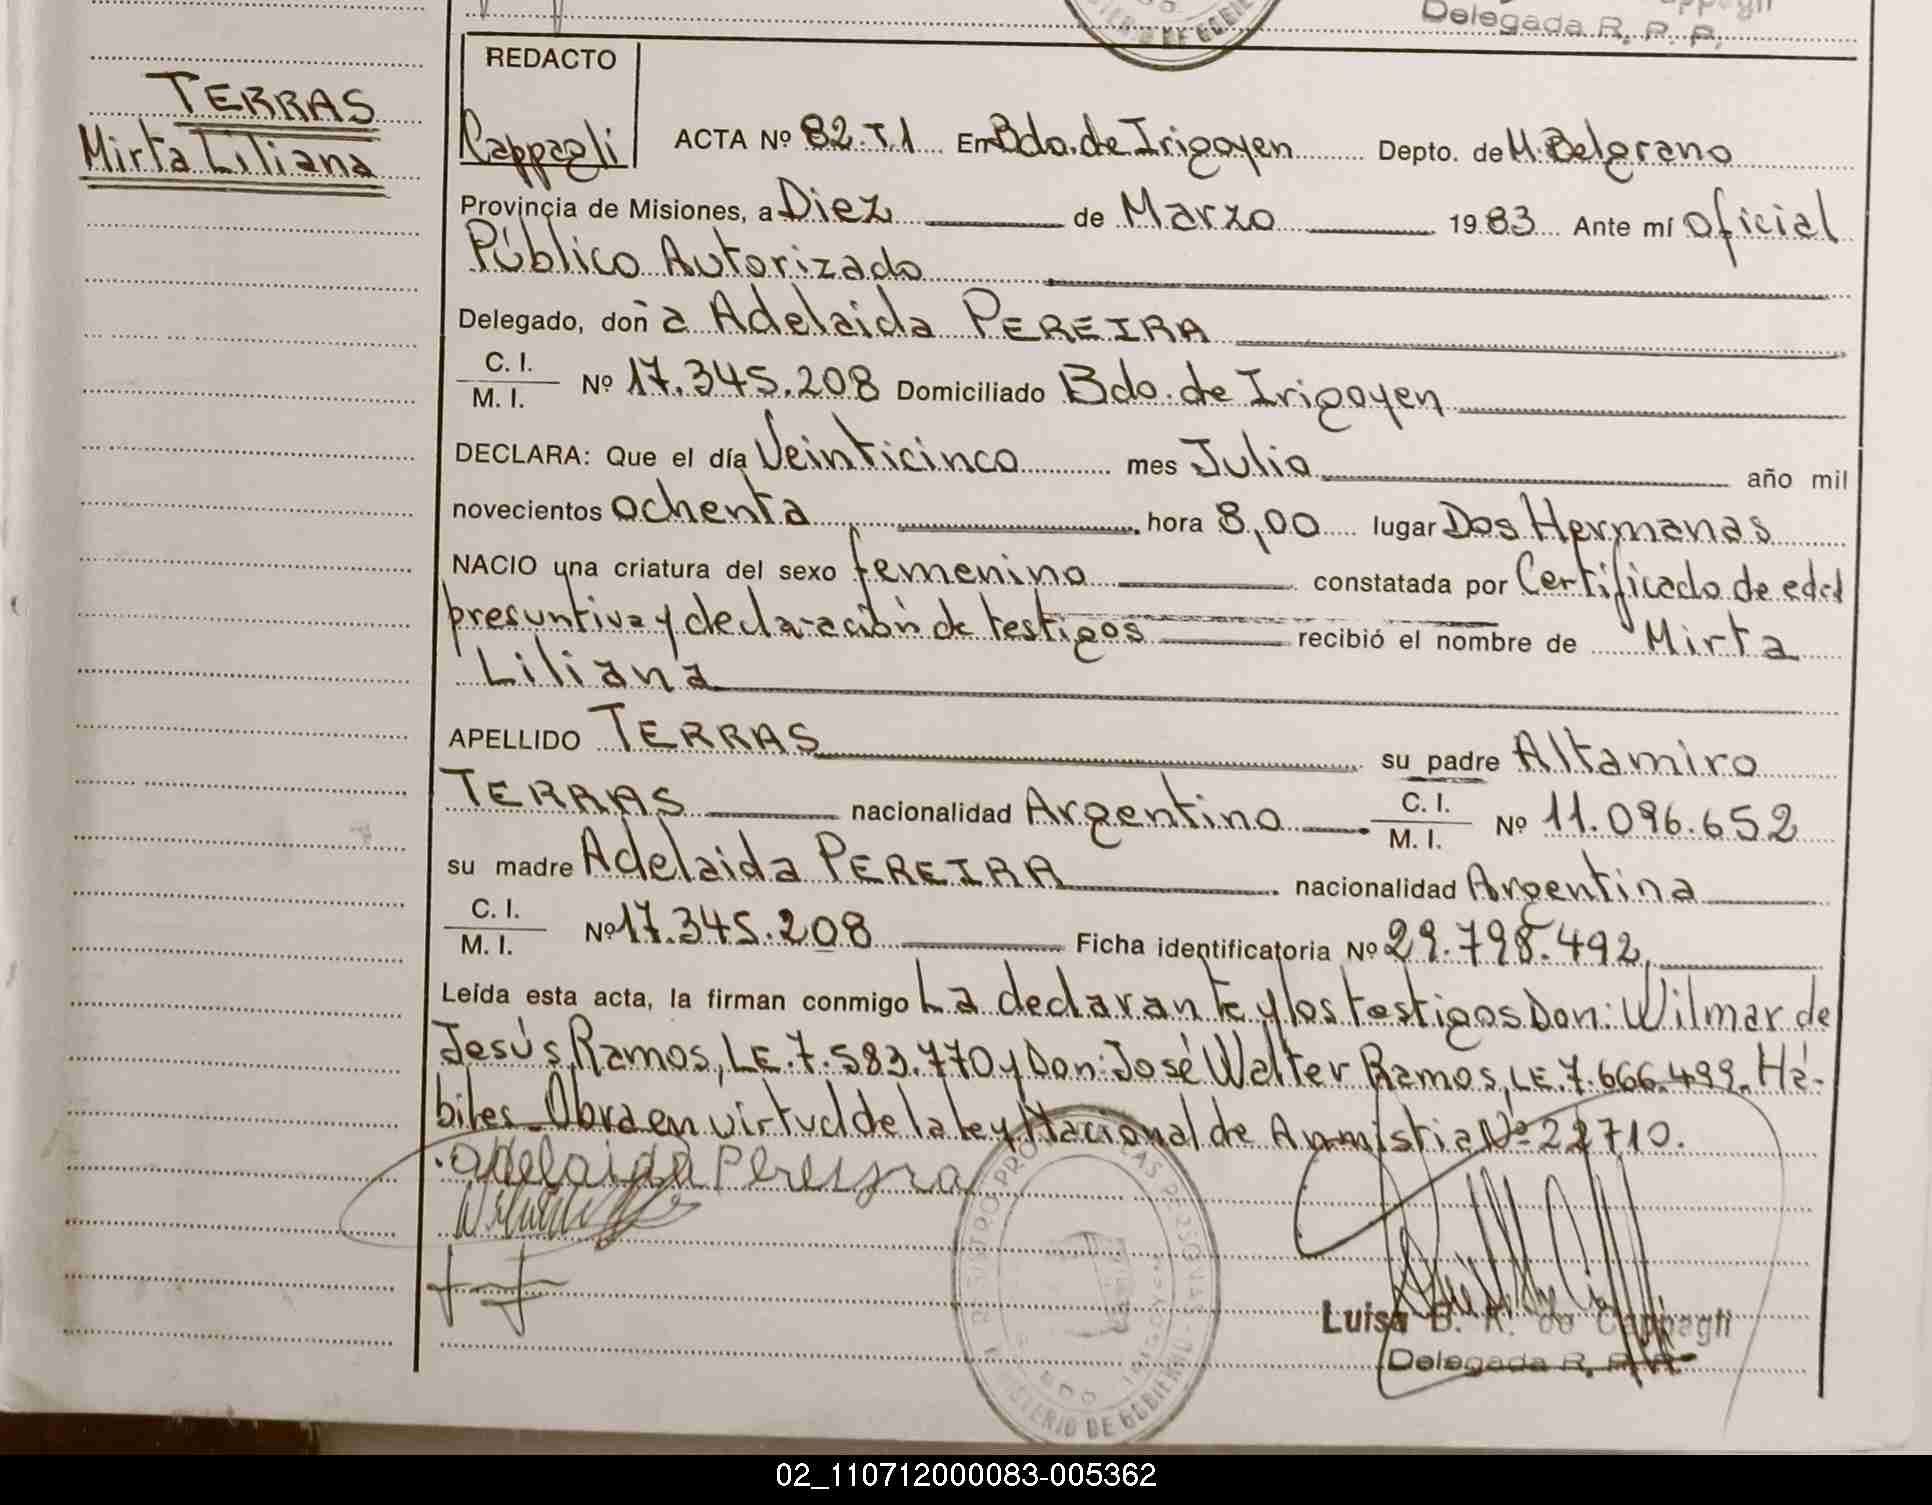 Delegada R. P. P.
TERRAS
Mirta Liliana
REDACTO
Cappagli
ACTA Nº 82. T1 En Bdo. de Irigoyen Depto. de M. Belgrano
Provincia de Misiones, a Diez de Marzo 1983 Ante mí oficial
Público Autorizado
Delegado, doña Adelaida PEREIRA
C. I.
M. I. Nº 17.345.208 Domiciliado Bdo. de Irigoyen
DECLARA: Que el día Veinticinco mes Julio año mil
novecientos ochenta hora 8,00 lugar Dos Hermanas
NACIO una criatura del sexo femenino constatada por Certificado de edad
presuntiva y declaración de testigos recibió el nombre de Mirta
Liliana
APELLIDO TERRAS su padre Altamiro
TERRAS nacionalidad Argentino C. I. M. I. Nº 11.096.652
su madre Adelaida PEREIRA nacionalidad Argentina
C. I.
M. I. Nº 17.345.208 Ficha identificatoria Nº 29.798.492
Leída esta acta, la firman conmigo La declarante y los testigos Don: Wilmar de
Jesús Ramos, LE. 7.583.770 y Don: José Walter Ramos, LE. 7.666.499. Há-
biles. Obra en virtud de la ley Nacional de Anmistia Nº 22710.
adelaida Pereyra
REGISTRO PROV. DE LAS PERSONAS
BDO. IRIGOYEN
MINISTERIO DE GOBIERNO
Luisa B. A. de Cappagli
Delegada R. P. P.
02_110712000083-005362